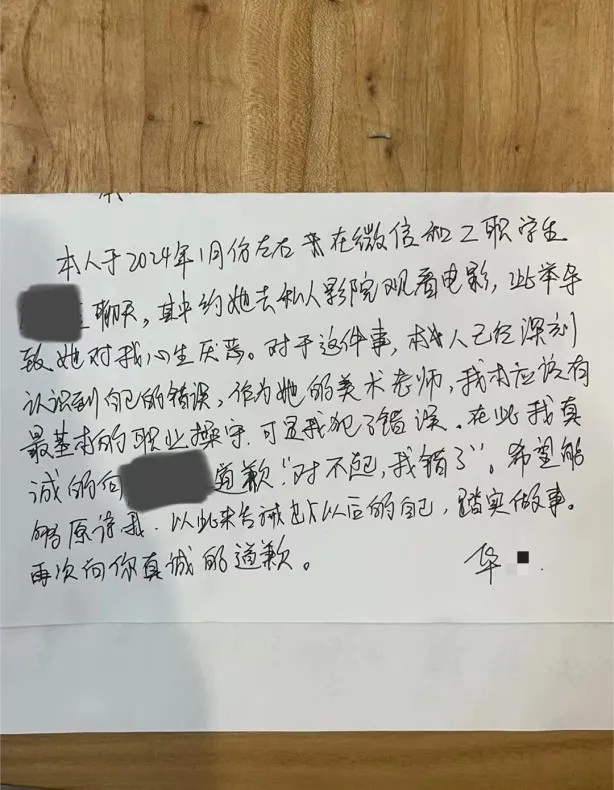 本人于2024年1月份左右来在微信和工职学生
聊天,其中约她去私人影院观看电影,此举导
致她对我心生厌恶。对于这件事,本人已经深刻
认识到自己的错误,作为她的美术老师,我本应该有
最基本的职业操守.可是我犯了错误。在此我真
诚的向 道歉“对不起,我错了”。希望能
够原谅我.以此来告诫以后的自己,踏实做事。
再次向你真诚的道歉。
华